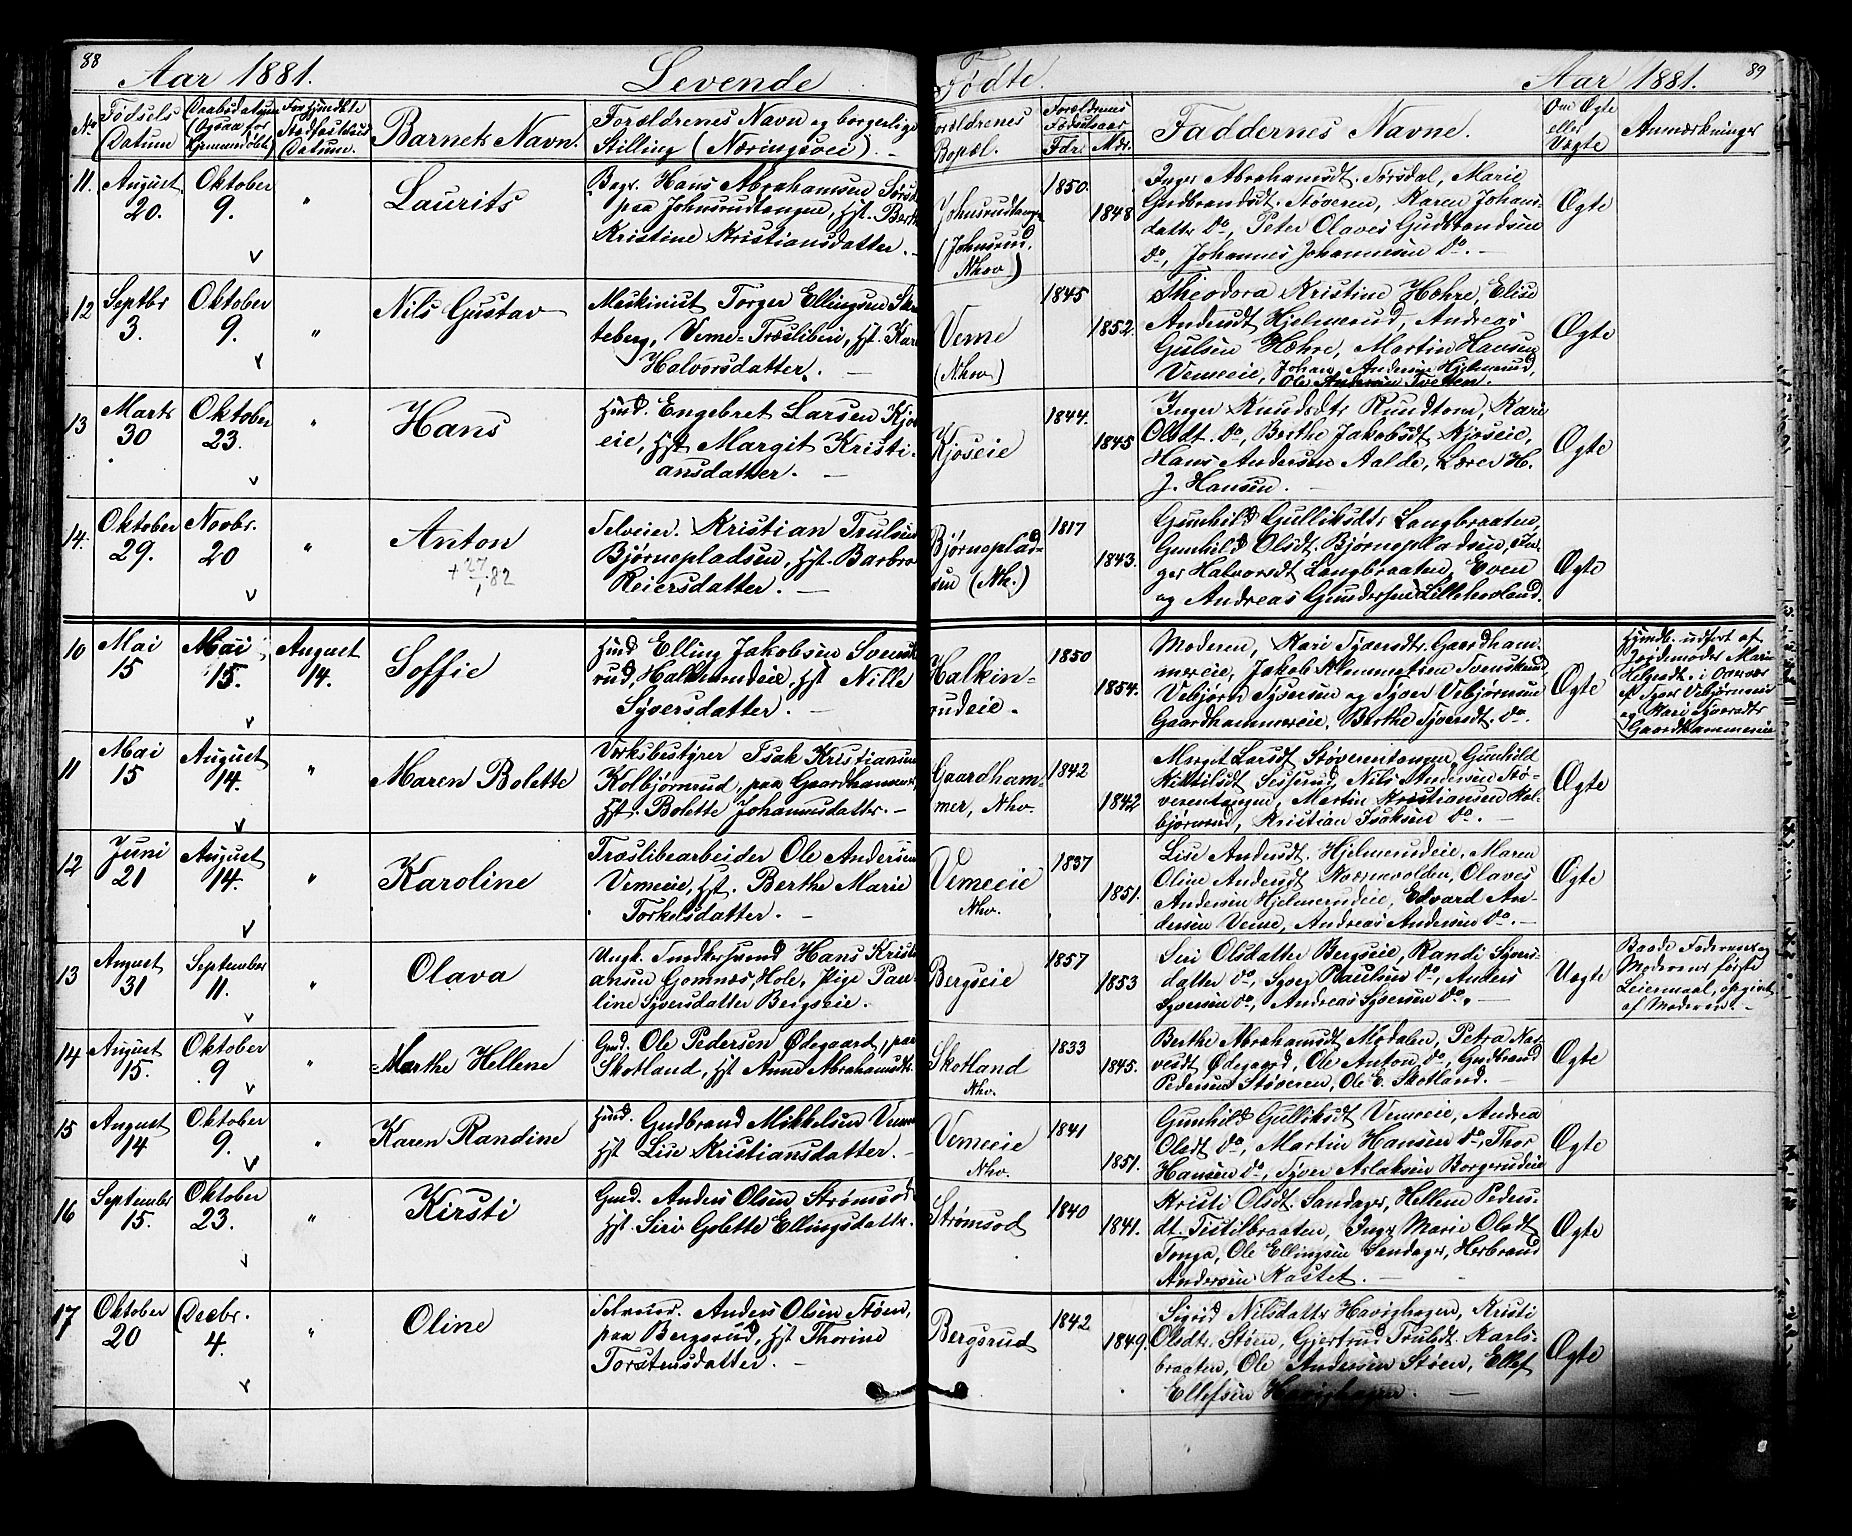 88
Aar 1881.
Levende
Fødte.
Aar 1881.
89
No
Fødsels
Datum
Daabsdatum
(Ogsaa for
Hjemmedøbte)
For Hjemdøbte
Stadfæstelses
Datum.
Barnets Navn.
Forældrenes Navn og borgerlige
Stilling (Næringsvei).
Forældrenes
Bopæl.
Forældrenes
Fødselsaar
Fdr.
Mdr.
Faddernes Navne.
Om Ægte
eller
Uægte
Anmærkninger
11.
August
20.
Oktober
9.
"
Laurits
Bags. Hans Abrahamsen Sørsdal
paa Johnsrudtangen, Hst. Berthe
Kristine Kristiansdatter.
Johnsrudtangen
(Johnsrud.
Nhov)
1850.
1848
Inger Abrahamsdt. Sørsdal, Marie
Gudbrandsdt. Støveren, Karen Johans-
datter Do, Peter Olaves Gudbrandsen
Do, Johannes Johannesen Do.
Ægte
12
Septbr
3.
Oktober
9.
"
Nils Gustav
Maskinist Torger Ellingsen
teberg, Veme-Træsliberi, Hst. Kari
Halvorsdatter.
Veme
(Nhov)
1845
1852.
Theodora Kristine Hæhre, Elise
Andersdt Hjelmerud, Andreas
Gulsen Hæhre, Martin Hansen
Vemeeie, Johan Andersen Hjelmerud,
Ole Andersen Tvetten.
Ægte
13
Marts
30
Oktober
23.
"
Hans
Husd. Engebret Larsen Kjos-
eie, Hst Margit Kristi-
ansdatter.
Kjoseie
1844.
1845
Inger Knudsdtr Rundtom, Kari
Olsdt. Do, Berthe Jakobsdt Kjoseie,
Hans Andersen Aalde, Lærer H.
J. Hansen.
Ægte
14.
Oktober
29.
Novbr.
20
"
Anton
+ 27 82
Selveier. Kristian Trulsen
Bjørnepladsen, Hst. Barbro
Reiersdatter.
Bjørneplad-
sen (Nh.)
1817
1843.
Gunhild Gulliksdtr Langbraaten,
Gunhild Olsdt. Bjørnepladsen, In-
ger Halvorsdt Langbraaten, Even
og Andreas Gundersen Lillehovland.
Ægte
10
Mai
15
Mai
15.
August
14.
Soffie
Husd Elling Jakobsen Svensk-
rud, Halkinrudeie, Hst Nille
Syversdatter.
Halkin-
rudeie.
1850
1854.
Moderen, Kari Syversdtr. Gaardham-
mereie, Jakob Klemmetsen Svenskrud,
Vebjørn Syversen og Syver Vebjørnsen
Gaardhammereie, Berthe Syversdt. Do.
Ægte
Hjmdb. udført af
Jordemoder Marie
Helgesdt. i Overvær
af Syver Vebjørnsen
og Kari Syversdtr
Gaardhammereie
11
Mai
15
August
14.
"
Maren Bolette
Verksbestyrer Isak Kristiansen
Kolbjørnrud, paa Gaardhammer,
Hst. Bolette Johannesdatter.
Gaardham-
mer, Nhv.
1842
1842
Marget Larsdt. Støverentangen, Gunhild
Kittilsdt Seiserud, Nils Andersen Stø-
verentangen, Martin Kristiansen Kol-
bjørnrud, Kristian Isaksen Do.
Ægte
12
Juni
21
August
14.
"
Karoline
Træslibearbeider Ole Andersen
Vemeeie, Hst. Berthe Marie
Torkelsdatter.
Vemeeie
Nhv.
1837
1851.
Lise Andersdt. Hjelmerudeie, Maren
Oline Andersdt Næssevolden, Olaves
Andersen Hjelmerudeie, Edvard An-
dersen Veme, Andreas Andersen Do.
Ægte
13
August
31
September
11.
"
Olava
Ungk. Snedkersvend Hans Kristi-
ansen Gomnæs, Hole, Pige Pau-
line Syversdatter Bergseie.
Bergseie
1857
1853
Siri Olsdatter Bergseie, Randi Syvers-
datter Do, Syver Paulsen Do, Anders
Syversen Do, Andreas Syversen Do.
Uægte
Baade Faderens og
Moderens første
Leiermaal, opgivet
af Moderen.
14
August
15.
Oktober
9
"
Marthe Hellene
Gmd. Ole Pedersen Ødegaard, paa
Skotland, Hst Anne Abrahamsdtr.
Skotland
Nhv.
1833
1845.
Berthe Abrahamsdt Modalen, Petra
Ødegaard, Ole Anton Do, Gudbrand
Pedersen Støveren, Ole E. Skotland.
Ægte
15
August
14
Oktober
9.
"
Karen Randine
Husd. Gudbrand Mikkelsen Veme
Hst Lise Kristiansdatter.
Vemeeie
Nhv.
1841
1851.
Gunhild Gulliksdt Vemeeie, Andrea
Olsdt Do, Martin Hansen Do, Thor
Hansen Do, Syver Aslaksen Borgerudeie
Ægte
16
September
15.
Oktober
23.
"
Kirsti
Gmd. Anders Olsen Strømsod
Hst. Siri Golette Ellingsdatter.
Strømsod
1840
1841.
Kristi Olsdt. Sandager, Hellene Peders-
dt. Tistilbraaten, Inger Marie Olsdt
Tonga, Ole Ellingsen Sandager, Herbrand
Andersen Kastet.
Ægte
17
Oktober
20
Decbr.
4.
"
Oline
Selveier. Anders Olsen Støen,
paa Bergsrud, Hst Thorine
Torstensdatter.
Bergsrud
1842
1849.
Sigrid Nilsdatter Havighagen, Kristi
Olsdtr. Støen, Gjertrud Trulsdt. Karls-
braaten, Ole Andersen Støen, Ellef
Ellefsen Havighagen.
Ægte